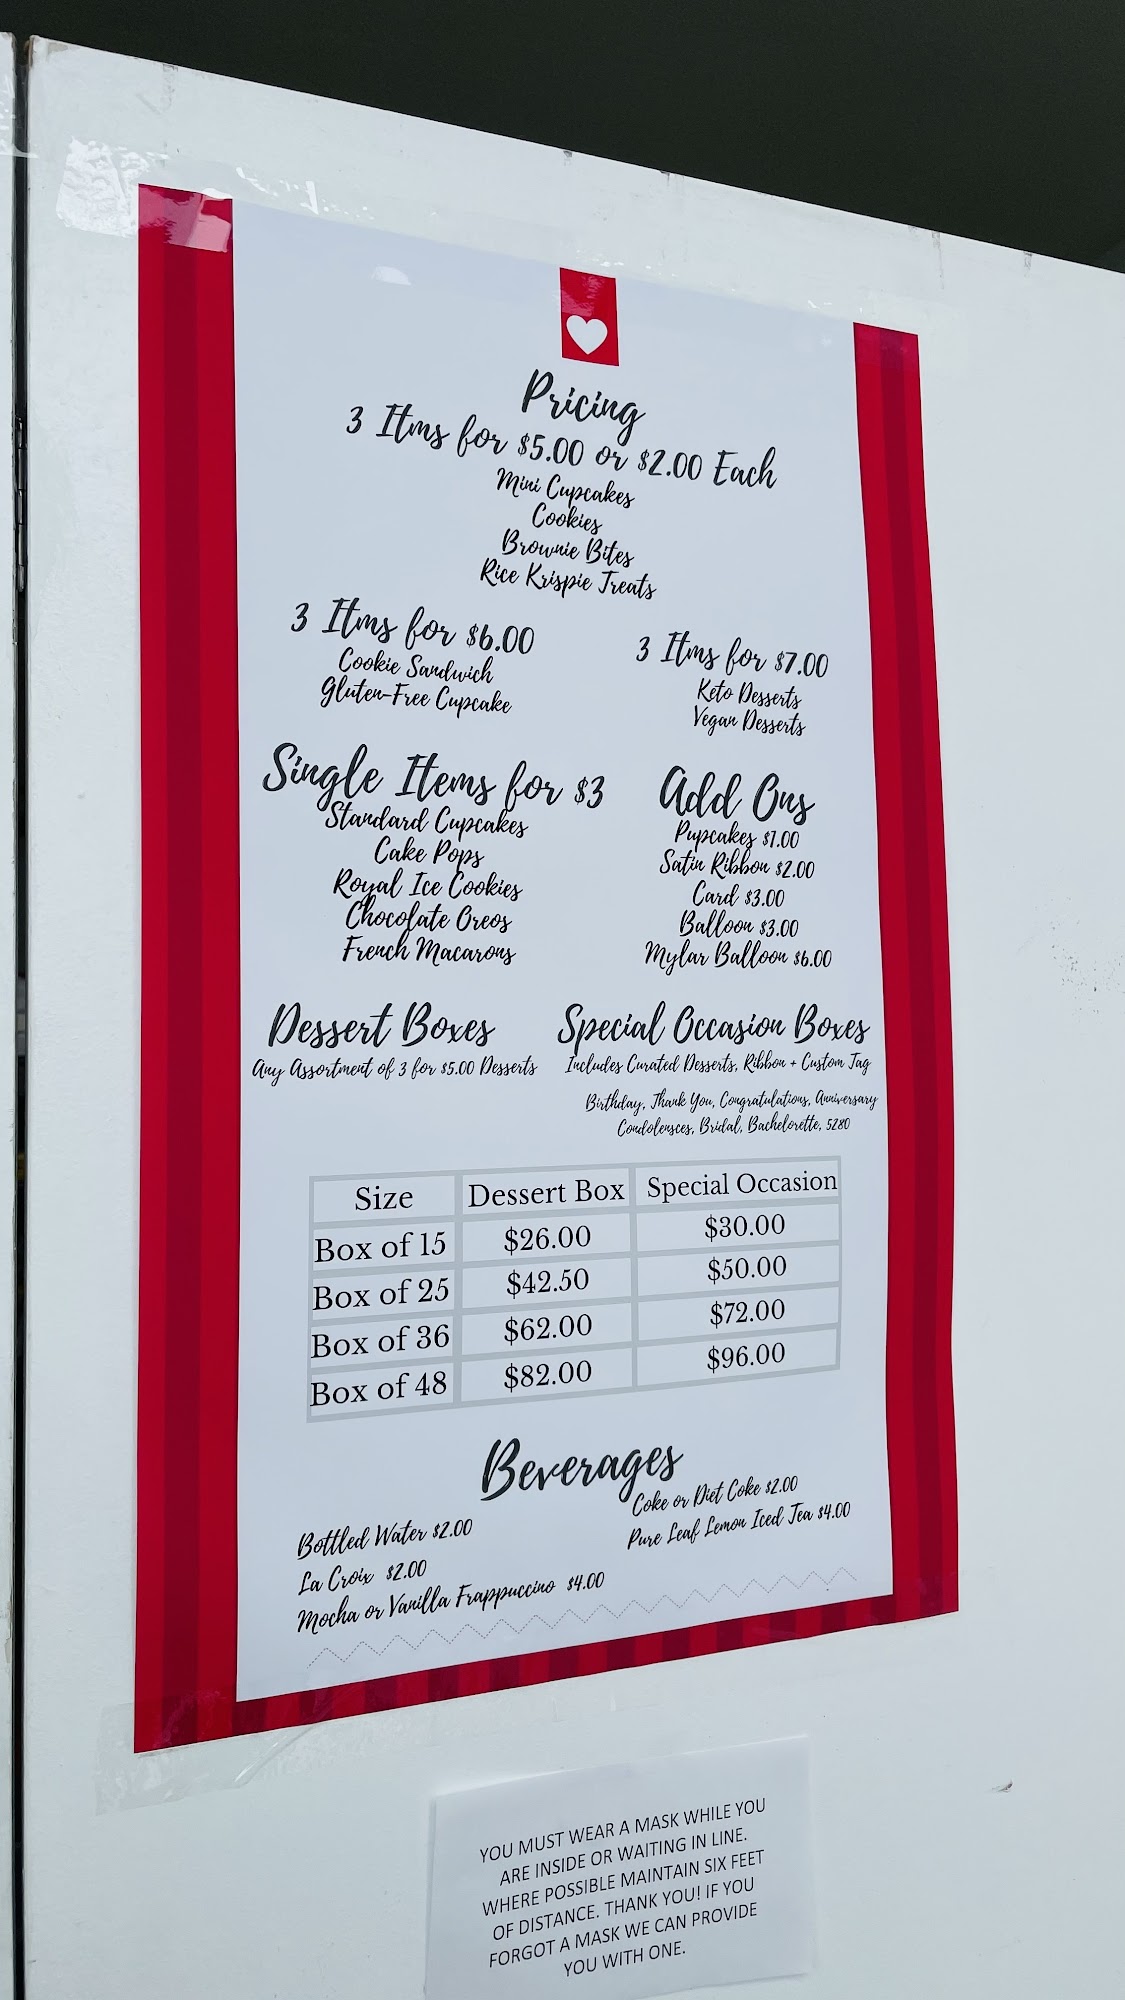 Pricing
3 Itms for $5.00 or $2.00 Each
Mini Cupcakes
Cookies
Brownie Bites
Rice Krispie Treats
3 Itms for $6.00
Cookie Sandwich
Gluten-Free Cupcake
3 Itms for $7.00
Keto Desserts
Vegan Desserts
Single Items for $3
Standard Cupcakes
Cake Pops
Royal Ice Cookies
Chocolate Oreos
French Macarons
Add Ons
Pupcakes $1.00
Satin Ribbon $2.00
Card $3.00
Balloon $3.00
Mylar Balloon $6.00
Dessert Boxes
Any Assortment of 3 for $5.00 Desserts
Special Occasion Boxes
Includes Curated Desserts, Ribbon + Custom Tag
Birthday, Thank You, Congratulations, Anniversary
Condolensces, Bridal, Bachelorette, 5280
Size Dessert Box Special Occasion
Box of 15 $26.00 $30.00
Box of 25 $42.50 $50.00
Box of 36 $62.00 $72.00
Box of 48 $82.00 $96.00
Beverages
Bottled Water $2.00
La Croix $2.00
Mocha or Vanilla Frappuccino $4.00
Coke or Diet Coke $2.00
Pure Leaf Lemon Iced Tea $4.00
YOU MUST WEAR A MASK WHILE YOU
ARE INSIDE OR WAITING IN LINE.
WHERE POSSIBLE MAINTAIN SIX FEET
OF DISTANCE. THANK YOU! IF YOU
FORGOT A MASK WE CAN PROVIDE
YOU WITH ONE.